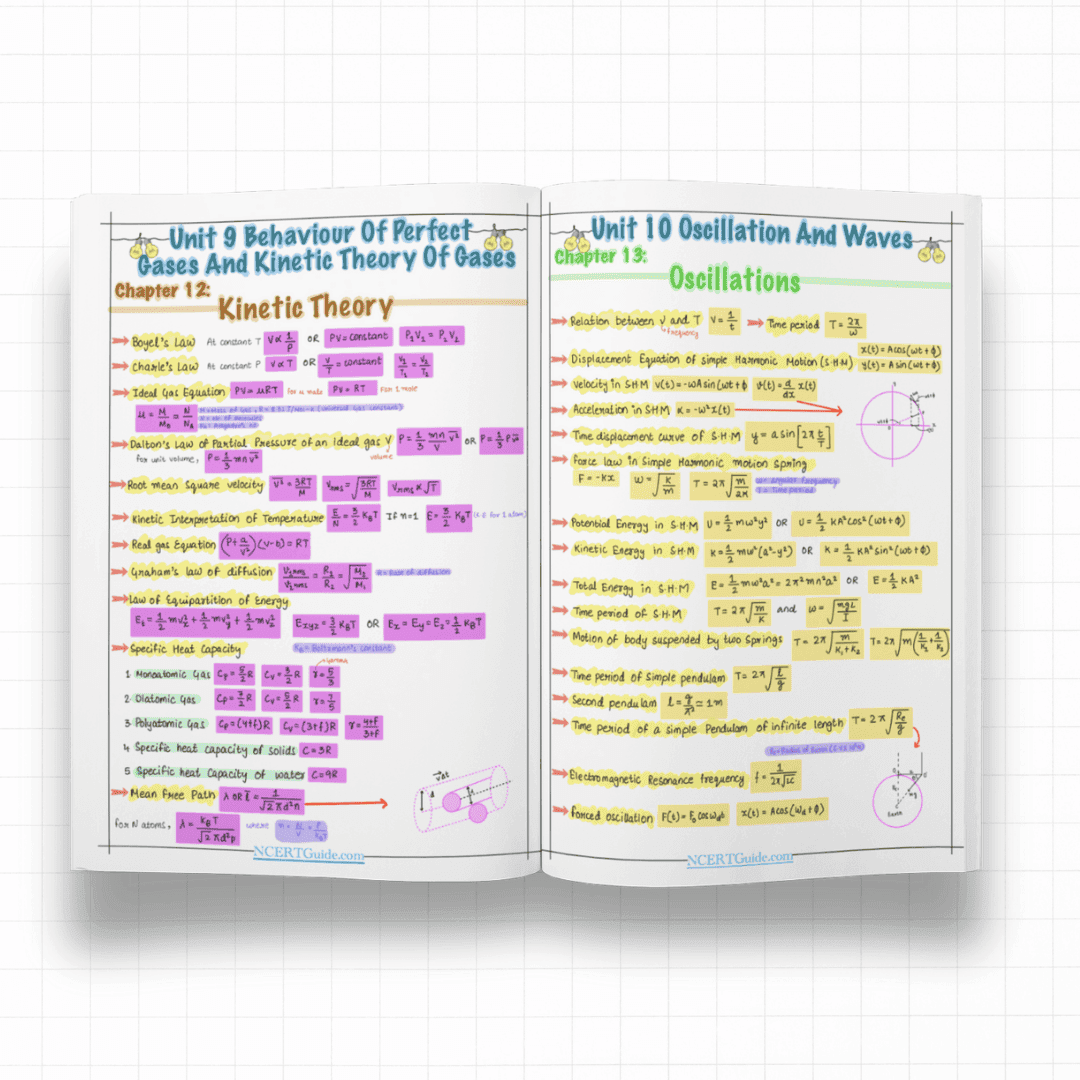 Unit 9 Behaviour Of Perfect
Gases And Kinetic Theory Of Gases
Chapter 12:
Kinetic Theory
Boyel's Law At constant T V∝ 1/P OR PV = constant P₁V₁ = P₂V₂
Charle's Law At constant P V∝T OR V/T = constant V₁/T₁ = V₂/T₂
Ideal Gas Equation PV = μRT for μ mole PV = RT For 1 mole
μ = M/M₀ = N/Nₐ
Dalton's Law of Partial Pressure of an Ideal gas V P = 1/3 mn/V v̄² OR
volume
for unit volume, P = 1/3 mn v̄²
Root mean Square velocity v̄² = 3RT/M Vrms = √3RT/M Vrms ∝ √T
Kinetic Interpretation of Temperature E/N = 3/2 K_BT If n=1 E = 3/2 K_BT (i.e for 1 atom)
Real gas Equation (P+a/V²)(V-b) = RT
Graham's law of diffusion V₁rms/V₂rms = R₁/R₂ = √M₂/M₁ R = Rate of diffusion
Law of Equipartition of Energy
Eₜ = 1/2 mvₓ² + 1/2 mv²y + 1/2 mv²z Exyz = 3/2 K_BT OR Ex = Ey = Ez = 1/2 K_BT
Specific Heat Capacity K_B = Boltzmann's constant
Gamma
1 Monoatomic Gas Cp = 5/2 R Cv = 3/2 R γ = 5/3
2 Diatomic Gas Cp = 7/2 R Cv = 5/2 R γ = 7/5
3 Polyatomic Gas Cp = (4+f)R Cv = (3+f)R γ = 4+f/3+f
4 Specific heat capacity of solids C = 3R
5 Specific heat Capacity of water C = 9R
Mean Free Path λ OR l̄ = 1/√2 πd²n
for N atoms, λ = K_BT/√2 πd²p where
NCERTGuide.com
Unit 10 Oscillation And Waves
Chapter 13:
Oscillations
Relation between V and T V = 1/t Time period T = 2π/ω
frequency
Displacement Equation of simple Harmonic Motion (S·H·M) x(t) = Acos(ωt+ϕ)
y(t) = A sin(ωt+ϕ)
Velocity in S·H·M v(t) = -ωA sin(ωt+ϕ v(t) = d/dx x(t)
Acceleration in SHM = -ω²x(t)
Time displacement curve of S·H·M y = a sin[2π t/T]
force law in Simple Harmonic motion spring
F = -kx ω = √K/m T = 2π √m/2k ω = angular frequency
T = Time period
Potential Energy in S·H·M U = 1/2 mω²y² OR U = 1/2 KA²cos²(ωt+ϕ)
Kinetic Energy in S·H·M K = 1/2 mω²(a²-y²) OR K = 1/2 KA²sin²(ωt+ϕ)
Total Energy in S·H·M E = 1/2 mω²a² = 2π²mn²a² OR E = 1/2 KA²
Time period of S·H·M T = 2π √m/K and ω = √mgL/I
Motion of body suspended by two Springs T = 2π √m/K₁+K₂ T = 2π √m(1/K₁+1/K₂)
Time period of Simple pendulam T = 2π √l/g
Second pendulam l = g/π² ≃ 1m
Time period of a simple Pendulam of infinite length T = 2π √Re/g
Electromagnetic Resonance frequency f = 1/2π√LC
forced oscillation F(t) = F₀ cos ω_d t x(t) = Acos(ω_d t+ϕ)
Earth
NCERTGuide.com